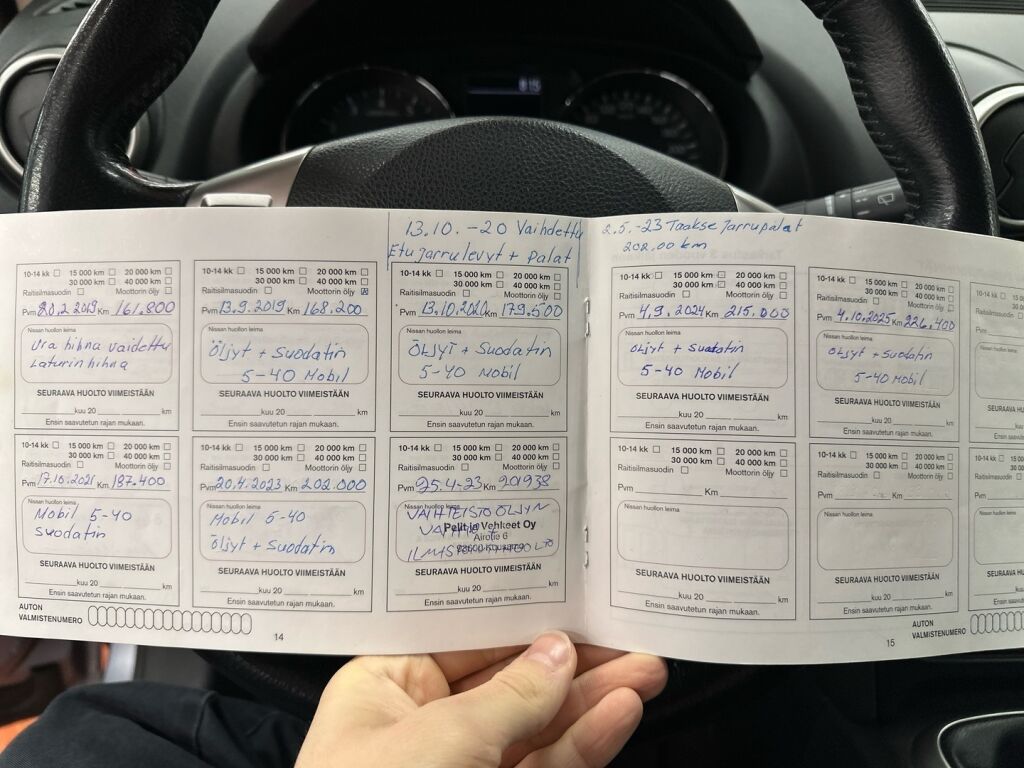 13.10. -20 Vaihdettu
Etujarrulevyt + Palat
2.5. -23 Taakse Jarrupalat
202.00 km
10-14 kk 15 000 km 20 000 km
30 000 km 40 000 km
Raitisilmasuodin Moottorin öljy
Pvm 20.2 2019 Km 161.800
Nissan huollon leima
Ura hihna vaidettu
Laturin hihna
SEURAAVA HUOLTO VIIMEISTÄÄN
kuu 20 km
Ensin saavutetun rajan mukaan.
10-14 kk 15 000 km 20 000 km
30 000 km 40 000 km
Raitisilmasuodin Moottorin öljy
Pvm 13.9.2019 Km 168.200
Nissan huollon leima
Öljyt + Suodatin
5-40 Mobil
SEURAAVA HUOLTO VIIMEISTÄÄN
kuu 20 km
Ensin saavutetun rajan mukaan.
10-14 kk 15 000 km 20 000 km
30 000 km 40 000 km
Raitisilmasuodin Moottorin öljy
Pvm Km 179.500
Nissan huollon leima
Öljyt + Suodatin
5-40 Mobil
SEURAAVA HUOLTO VIIMEISTÄÄN
kuu 20 km
Ensin saavutetun rajan mukaan.
10-14 kk 15 000 km 20 000 km
30 000 km 40 000 km
Raitisilmasuodin Moottorin öljy
Pvm 17.10.2021 Km 187.400
Nissan huollon leima
Mobil 5-40
Suodatin
SEURAAVA HUOLTO VIIMEISTÄÄN
kuu 20 km
Ensin saavutetun rajan mukaan.
10-14 kk 15 000 km 20 000 km
30 000 km 40 000 km
Raitisilmasuodin Moottorin öljy
Pvm 20.4.2023 Km 202.000
Nissan huollon leima
Mobil 5-40
Öljyt + Suodatin
SEURAAVA HUOLTO VIIMEISTÄÄN
kuu 20 km
Ensin saavutetun rajan mukaan.
10-14 kk 15 000 km 20 000 km
30 000 km 40 000 km
Raitisilmasuodin Moottorin öljy
Pvm 25.4-23 Km 201938
Nissan huollon leima
VAIHTEISTOÖLJYN
Pelit ja Vehkeet Oy
Airotie 6
SEURAAVA HUOLTO VIIMEISTÄÄN
kuu 20 km
Ensin saavutetun rajan mukaan.
AUTON
VALMISTENUMERO
14
10-14 kk 15 000 km 20 000 km
30 000 km 40 000 km
Raitisilmasuodin Moottorin öljy
Pvm 4.9.2024 Km 215.000
Nissan huollon leima
Öljyt + Suodatin
5-40 Mobil
SEURAAVA HUOLTO VIIMEISTÄÄN
kuu 20 km
Ensin saavutetun rajan mukaan.
10-14 kk 15 000 km 20 000 km
30 000 km 40 000 km
Raitisilmasuodin Moottorin öljy
Pvm 4.10.2025 Km 226.400
Nissan huollon leima
Öljyt + Suodatin
5-40 Mobil
SEURAAVA HUOLTO VIIMEISTÄÄN
kuu 20 km
Ensin saavutetun rajan mukaan.
10-14 kk
Raitisilmasuodin
Pvm
Nissan huollon leima
SEURAAVA HU
kuu 20
Ensin saavutetun
10-14 kk 15 000 km 20 000 km
30 000 km 40 000 km
Raitisilmasuodin Moottorin öljy
Pvm Km
Nissan huollon leima
SEURAAVA HUOLTO VIIMEISTÄÄN
kuu 20 km
Ensin saavutetun rajan mukaan.
10-14 kk 15 000 km 20 000 km
30 000 km 40 000 km
Raitisilmasuodin Moottorin öljy
Pvm Km
Nissan huollon leima
SEURAAVA HUOLTO VIIMEISTÄÄN
kuu 20 km
Ensin saavutetun rajan mukaan.
10-14 kk
Raitisilmasuodin
Pvm
Nissan huollon leima
SEURAAVA HU
kuu 20
Ensin saavutetun
AUTON
VALMISTENUMERO
15